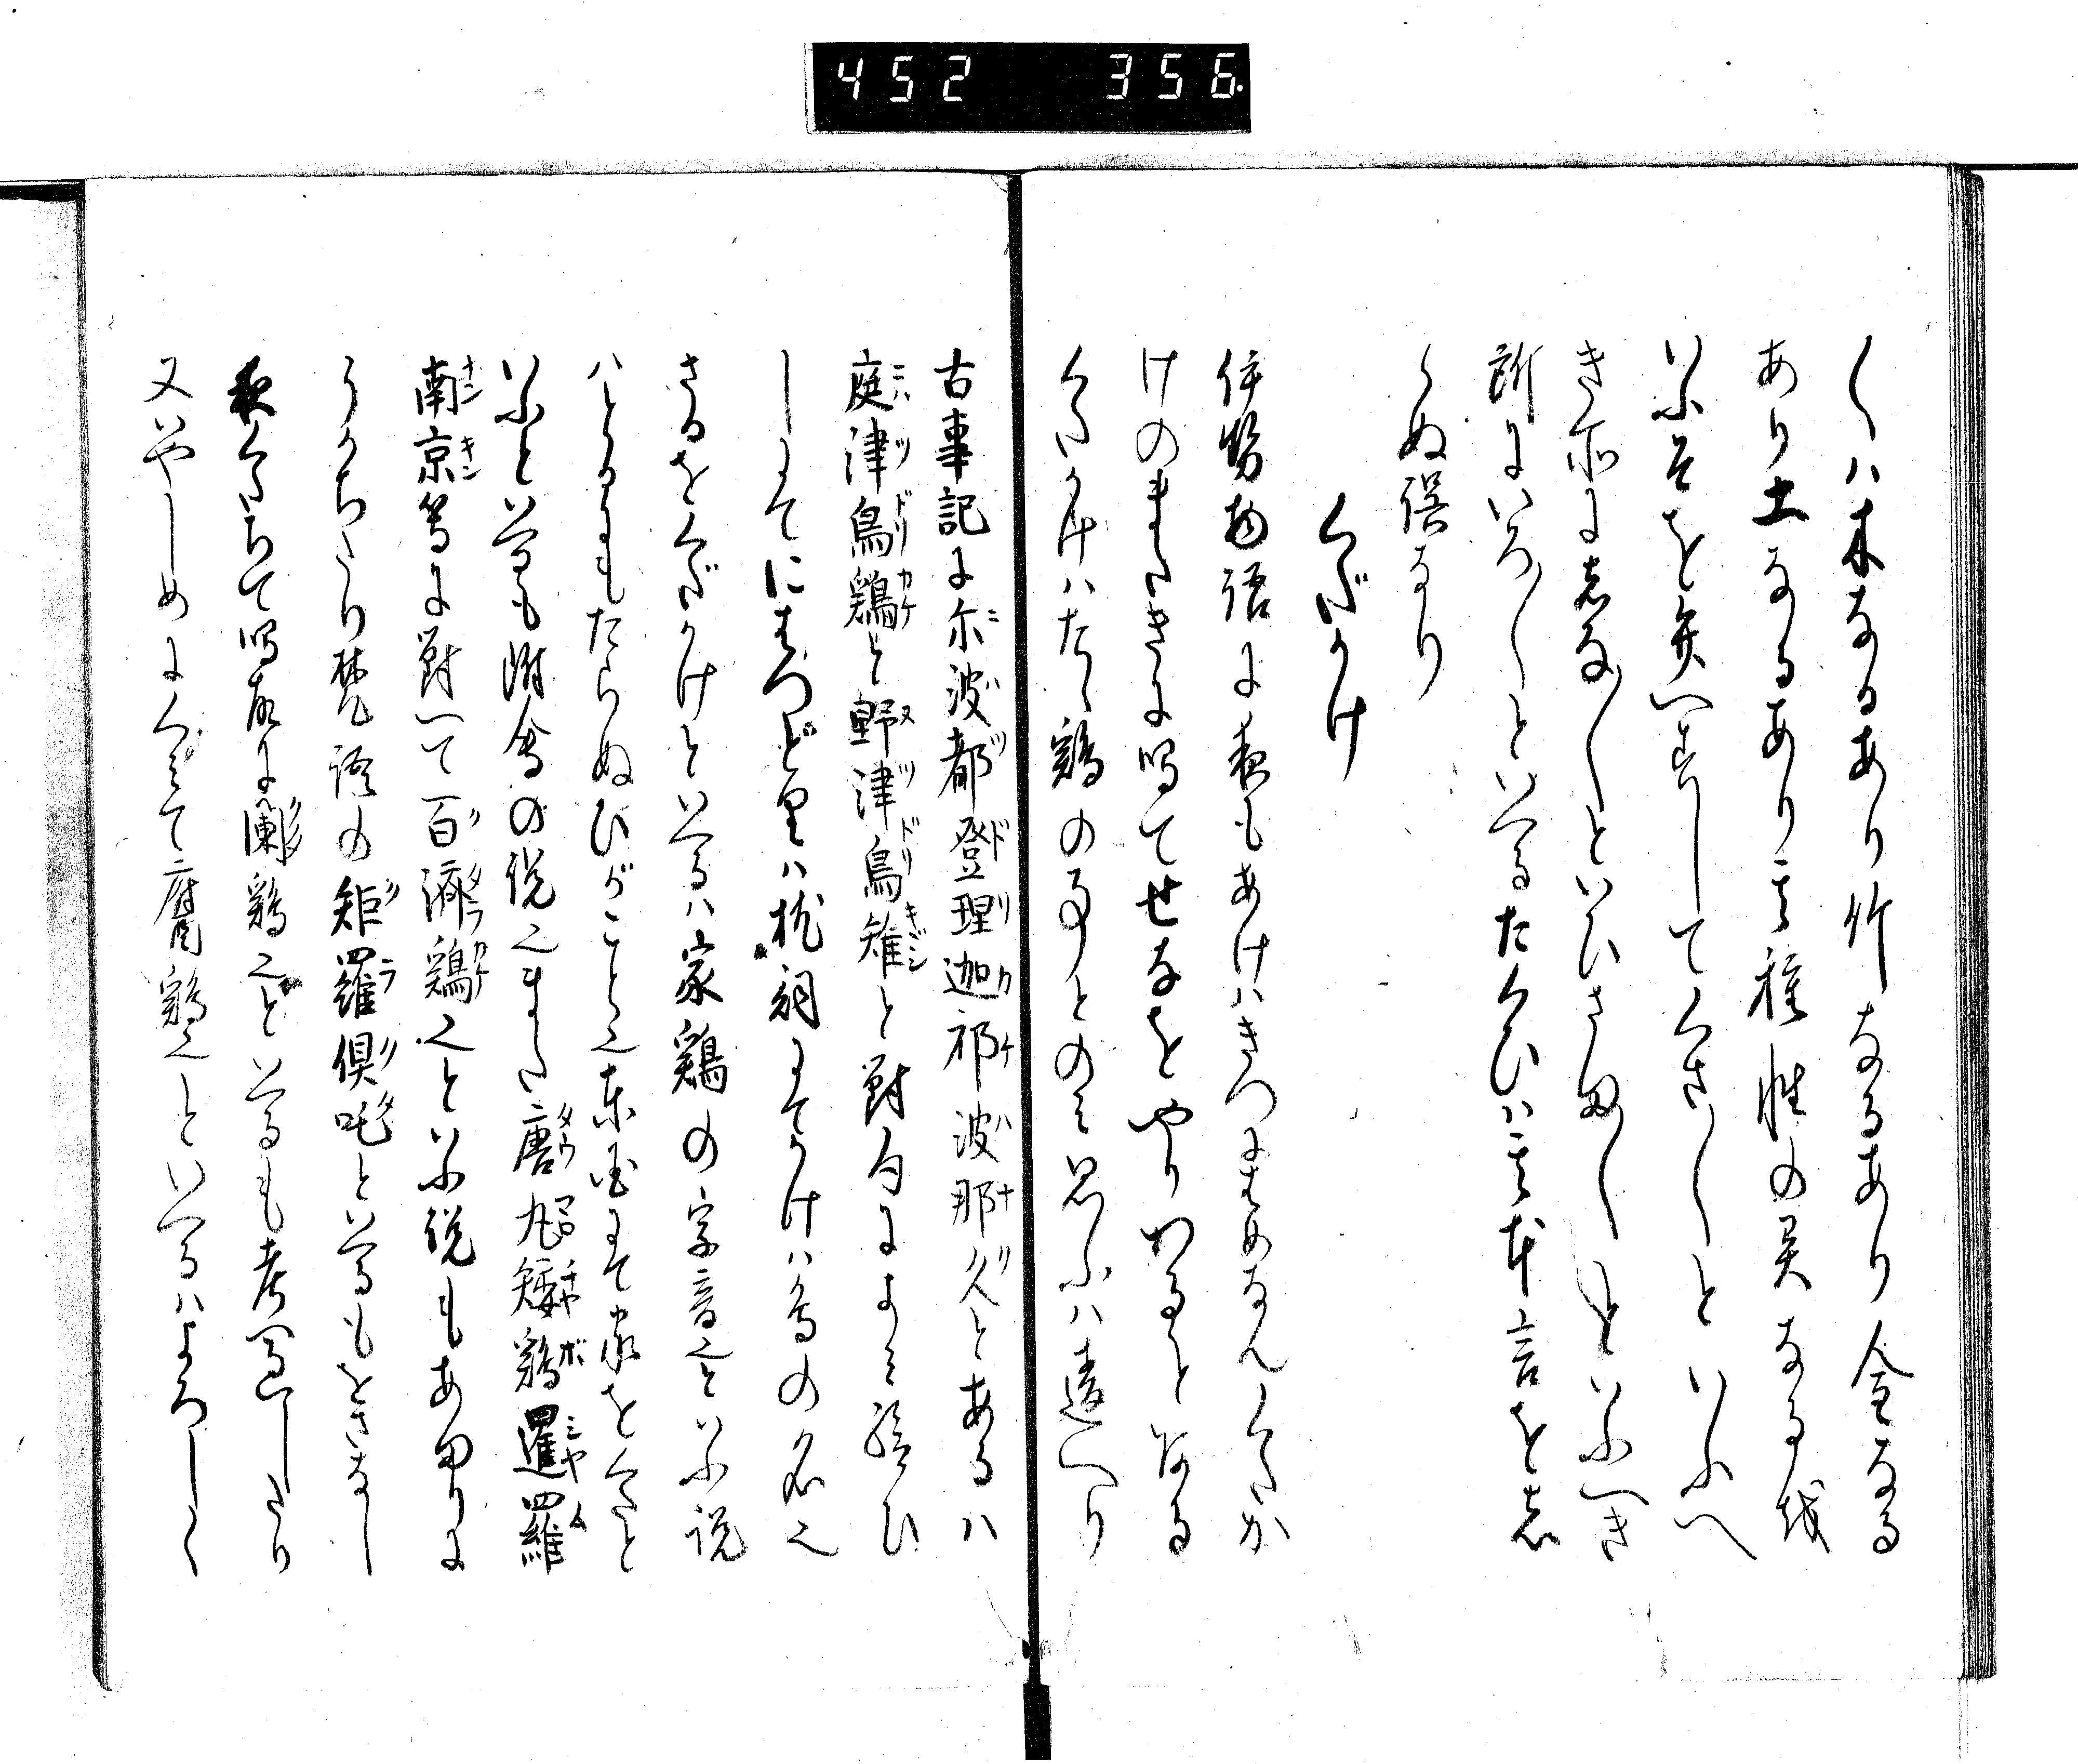 452 356
くハ木なるあり竹なるあり金なる
あり土なるあり其種性の異なる越
いふそを弁へすしてくさ〳〵といふへ
き所に志な〳〵といひさま〳〵といふへき
所にいろ〳〵といへるたくひハ其本言を志
らぬ誤なり
くだかけ
伊勢物語に夜もあけハきつにはめなんくたか
けのまたきに鳴てせなをやりつるとある
くたかけハたゝ鶏の事とのミ思ふハ違へり
古事記に尓波都登理迦祁波那久とあるハ
庭津鳥鶏と野津鳥雉と対句によミ給ひ
しにてにはつどりハ枕詞にてかけハ鳥の名也
さるをくだかけといへるハ家鶏の字音也といふ説
ハとるにもたらぬひがこと也東国にて家をくたと
いふといへるも附会の説也また唐丸矮鶏暹羅
南京等に対へて百済鶏也といふ説もあまりに
うかちたり梵語の矩羅倶吒といへるもをさなし
夜くたちて鳴故に闌鶏也といへるも考過したり
又いやしめにくミて腐鶏也といへるハよろしく